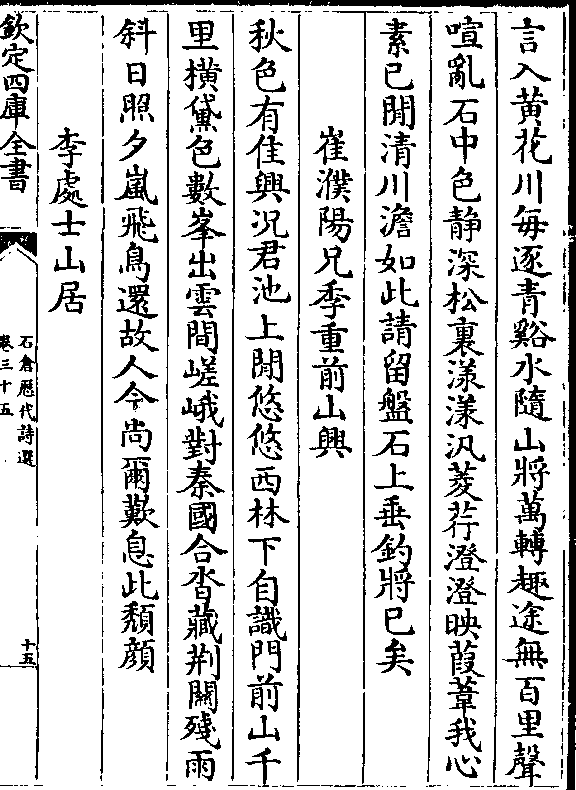 言入黄花川毎逐青谿水隨山將萬轉趣途無百里聲
喧亂石中色静深松裏漾漾汎菱荇澄澄映葭葦我心
素已閒清川澹如此請留盤石上垂釣將已矣
崔濮陽兄季重前山興
秋色有佳興况君池上閒悠悠西林下自識門前山千
里横黛色數峯出雲間嵯峨對秦國合沓藏荆關殘雨
斜日照夕嵐飛鳥還故人今尚爾歎息此頽顔
李處士山居
欽定四庫全書
石倉歴代詩選
卷三十五
十五